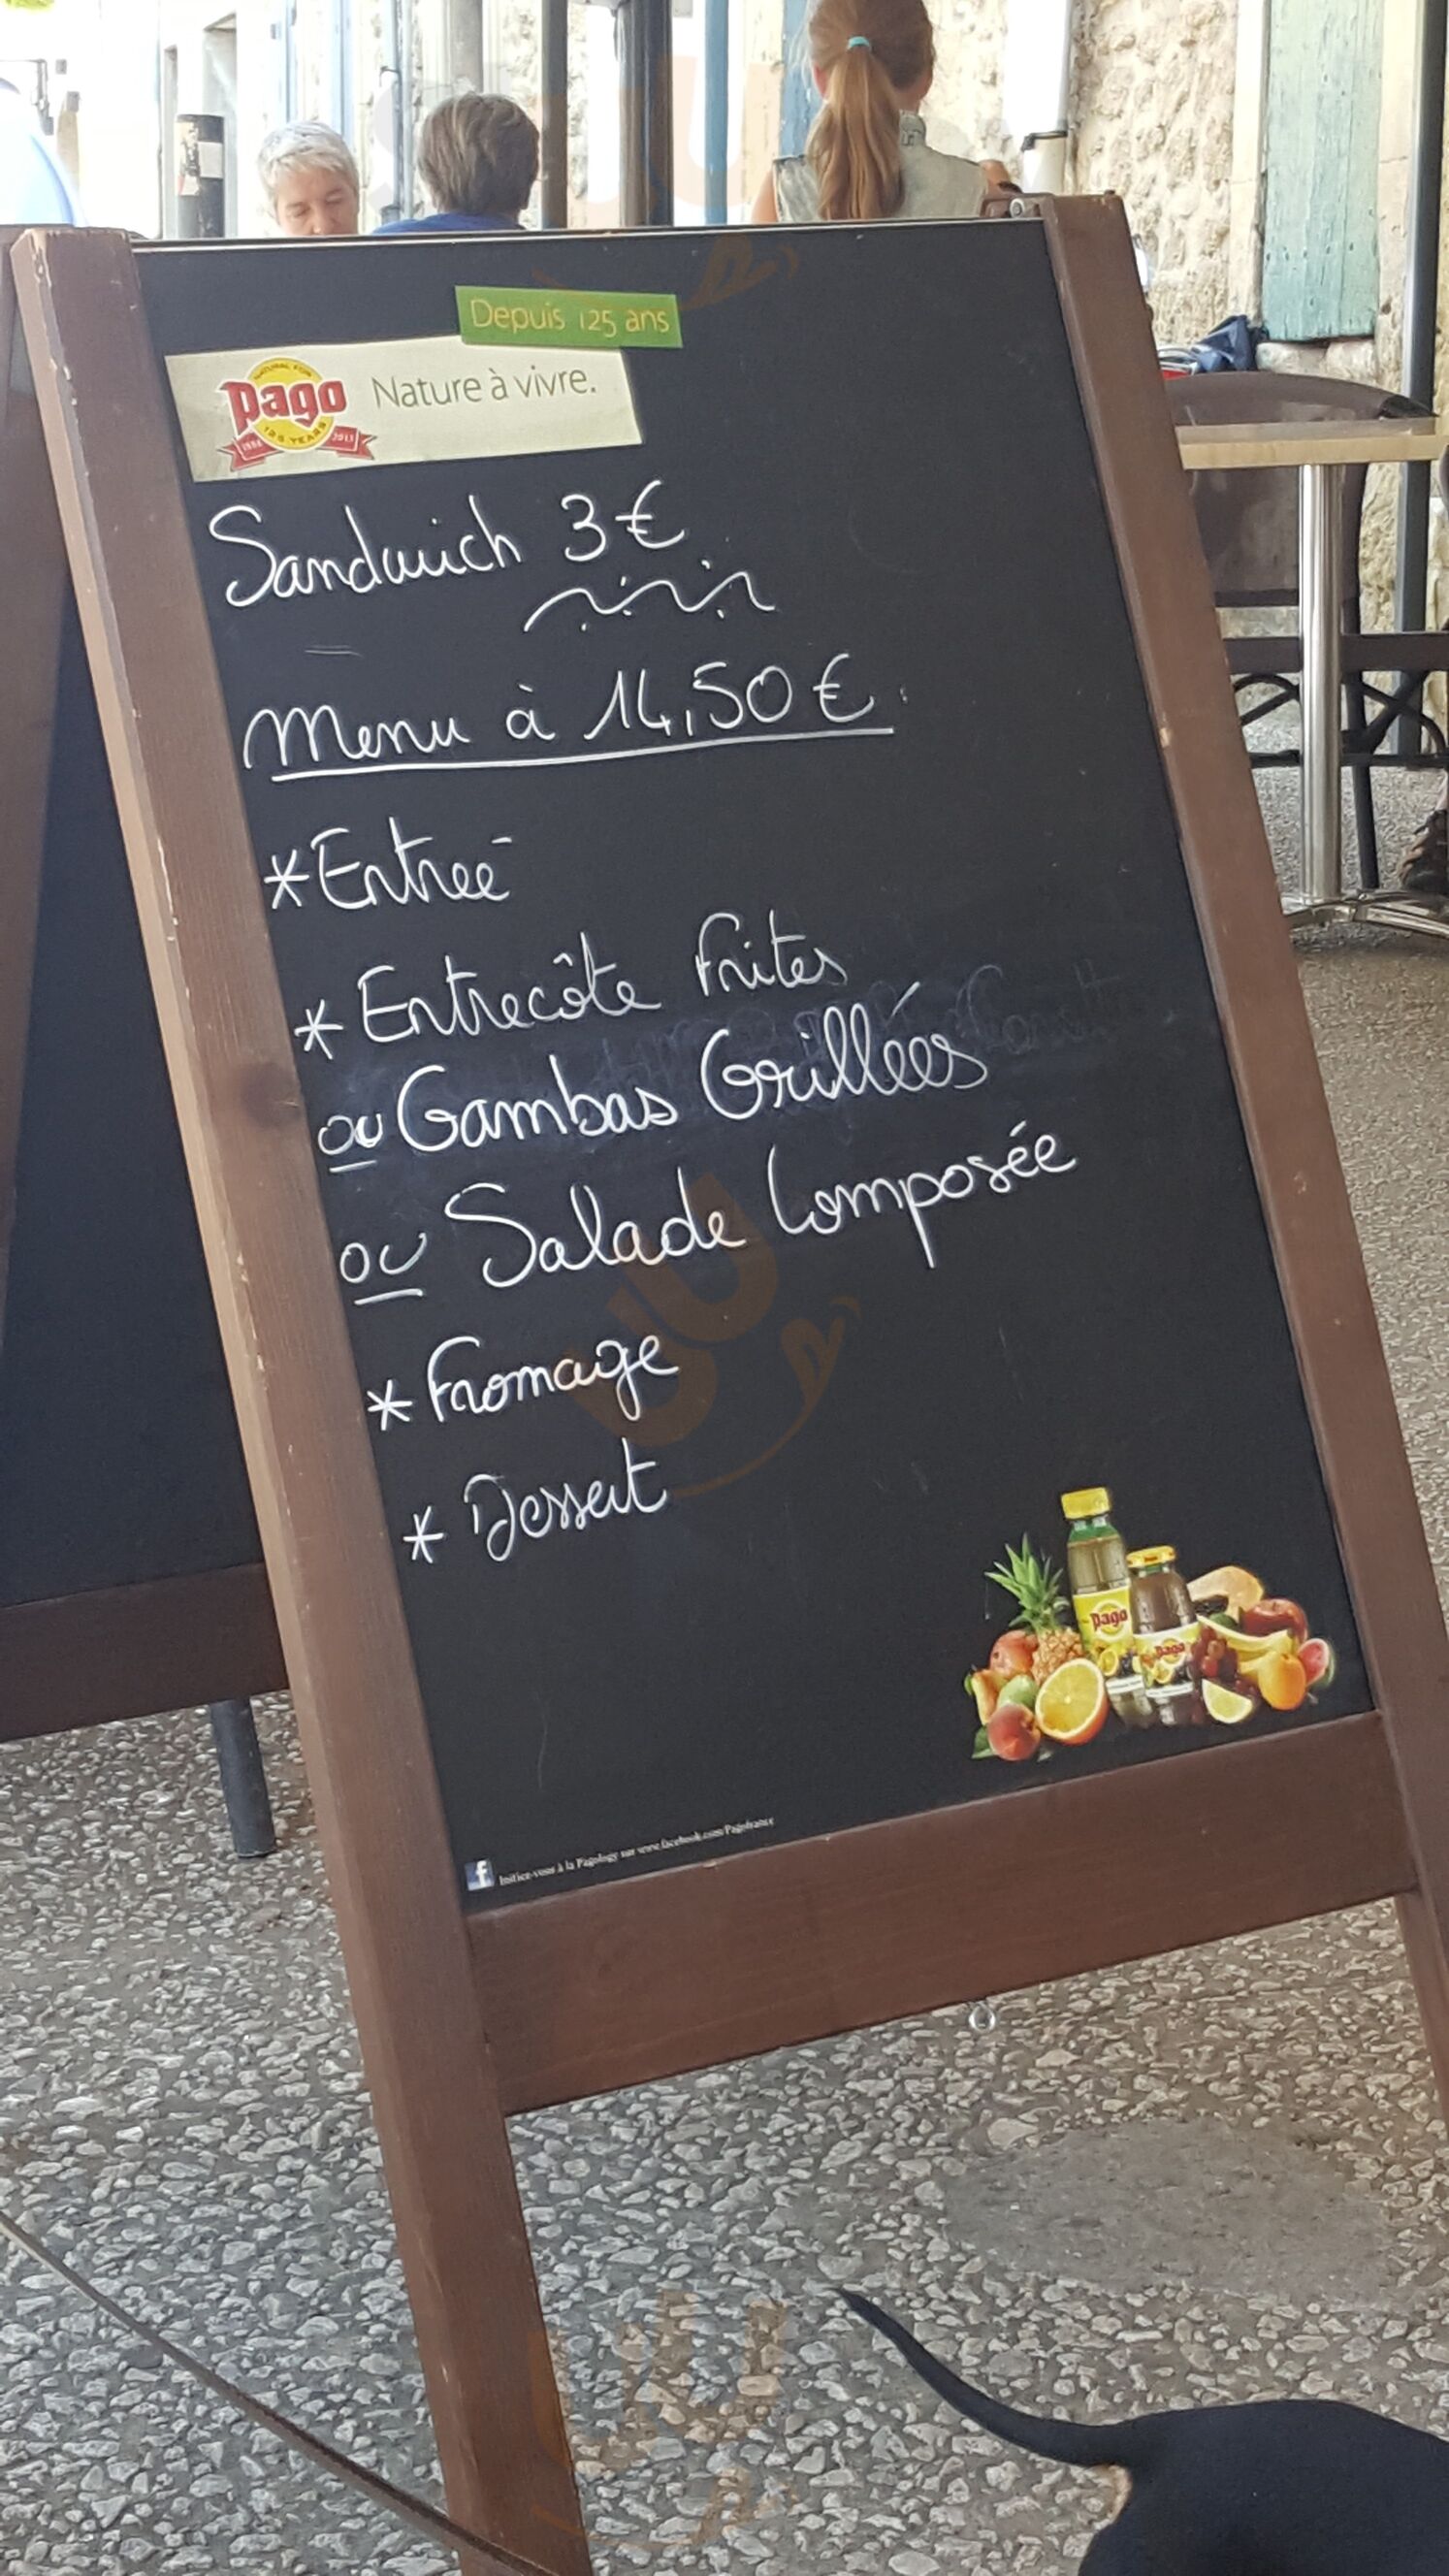 Depuis 125 ans
NATURAL FUN
Pago
125 YEARS
1888 2013
Nature à vivre.
Sandwich 3€
Menu à 14,50€
*Entreé
* Entrecôte Frites
ou Gambas Grillées
ou Salade Composée
* Fromage
* Dessert
Pago
Pago
f Initiez-vous à la Pagology sur www.facebook.com/Pagofrance